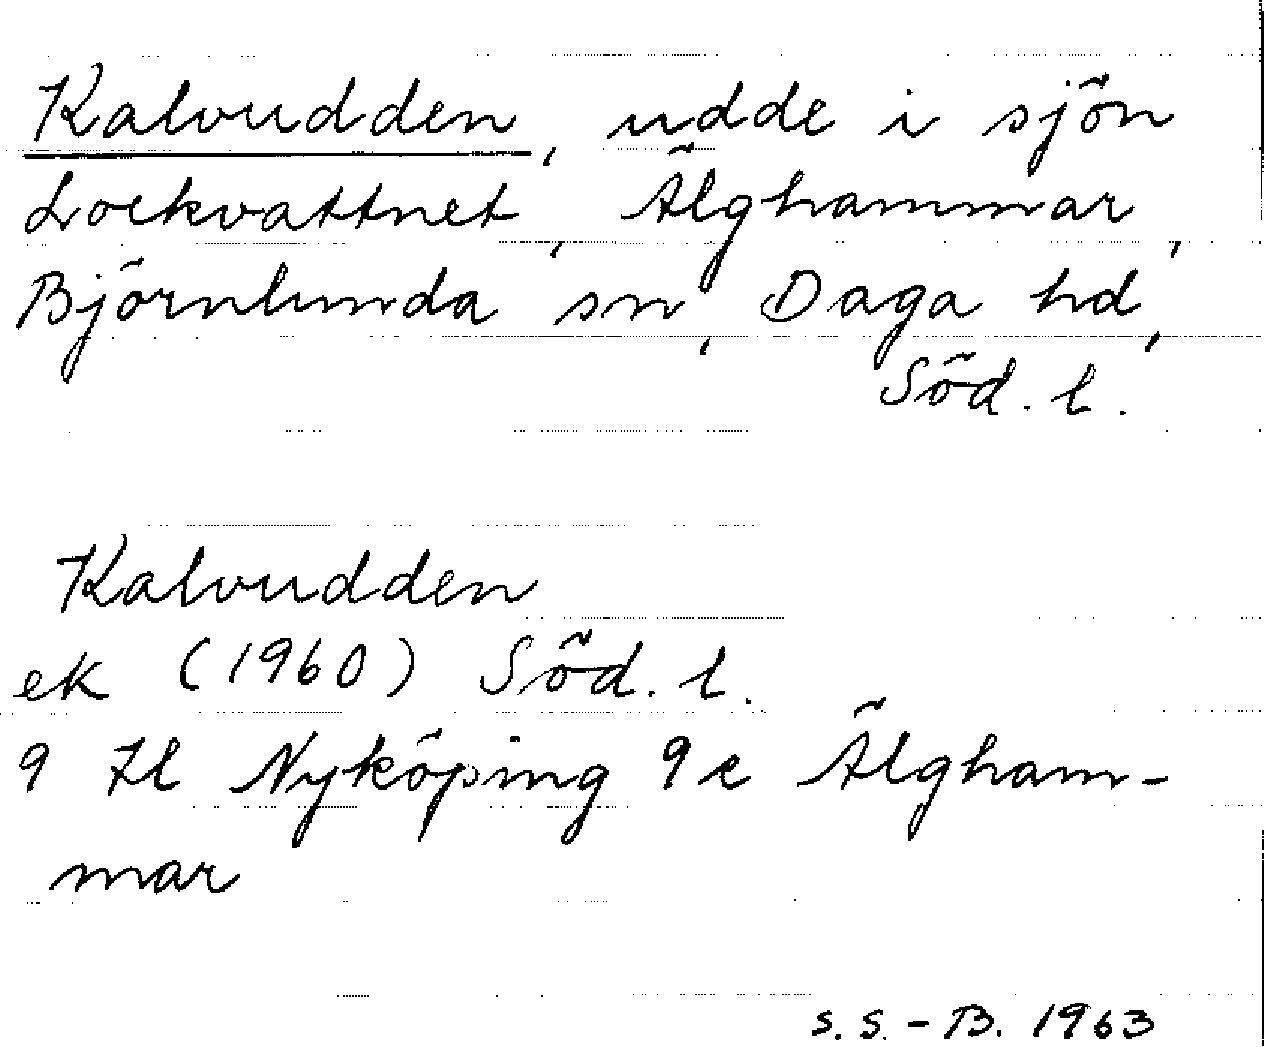 Kalvudden, udde i sjön
Lockvattnet, Älghammar,
Björnlunda sn, Daga hd,
Söd. l.
Kalvudden
ek (1960) Söd. l.
9 Il Nyköping 9e Älgham-
mar
S.S.-B. 1963